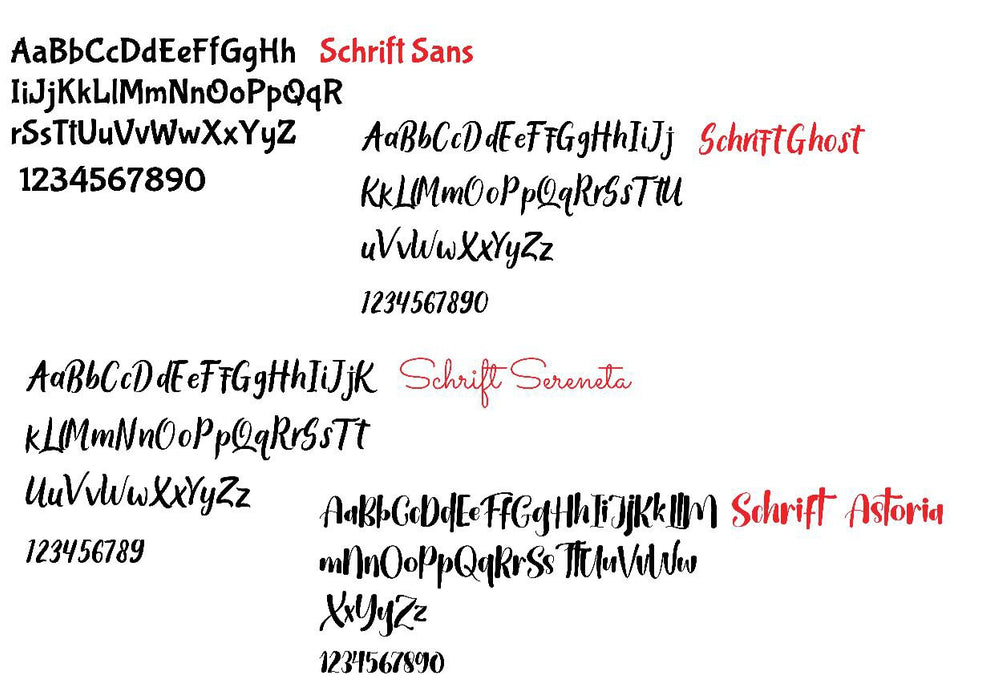 AaBbCcDdEeFfGgHh Schrift Sans
IiJjKkLlMmNnOoPpQqR
rSsTtUuVvWwXxYyZ
1234567890
AaBbCcDdEeFfGgHhIiJj Schrift Ghost
KkLlMmOoPpQqRrSsTtU
uVvWwXxYyZz
1234567890
AaBbCcDdEeFfGgHhIiJjK Schrift Sereneta
kLlMmNnOoPpQqRrSsTt
UuVvWwXxYyZz
123456789
AaBbCcDdEeFfGgHhIiJjKkLlM Schrift Astoria
mNnOoPpQqRrSsTtUuVvWw
XxYyZz
1234567890